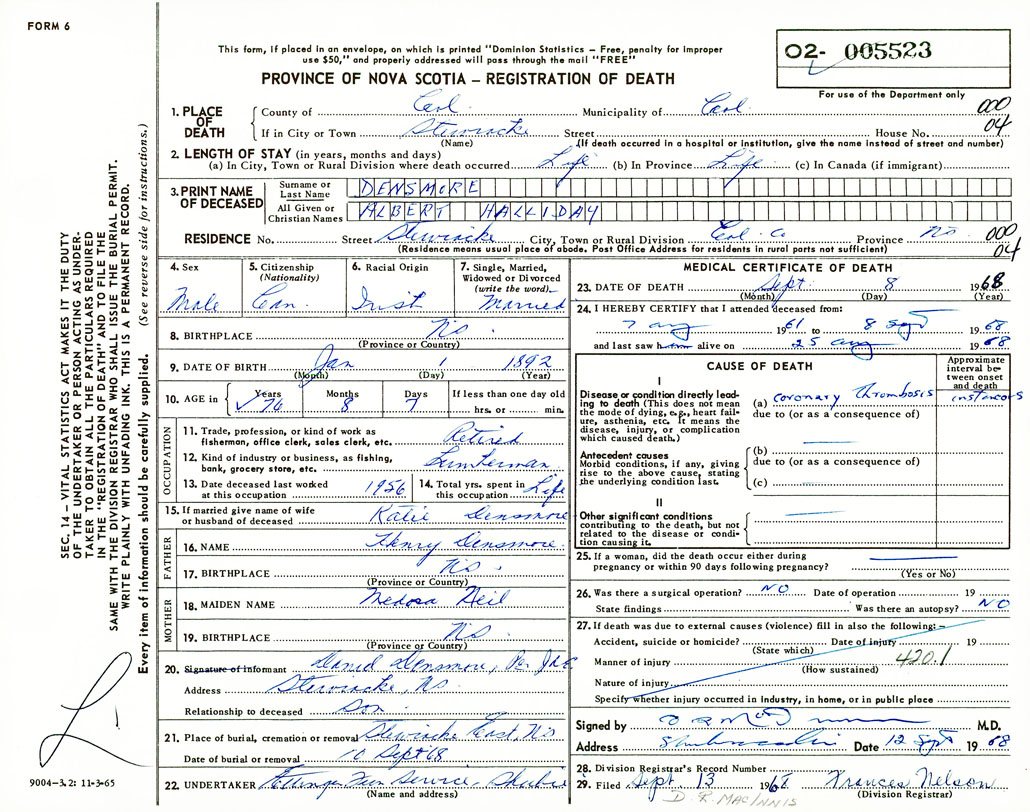 FORM 6
This form, if placed in an envelope, on which is printed "Dominion Statistics – Free, penalty for improper
use $50," and properly addressed will pass through the mail "FREE"
PROVINCE OF NOVA SCOTIA – REGISTRATION OF DEATH
02- 005523
For use of the Department only
1. PLACE OF DEATH
County of Col. Municipality of Col. 000
If in City or Town Stewiacke Street House No. 04
(Name) (If death occurred in a hospital or institution, give the name instead of street and number)
2. LENGTH OF STAY (in years, months and days)
(a) In City, Town or Rural Division where death occurred Life (b) In Province Life (c) In Canada (if immigrant)
3. PRINT NAME OF DECEASED
Surname or Last Name DENSMORE
All Given or Christian Names ALBERT HALLIDAY
RESIDENCE No. Street Stewiacke City, Town or Rural Division Col. Co Province NS 000
(Residence means usual place of abode. Post Office Address for residents in rural parts not sufficient) 04
4. Sex Male
5. Citizenship (Nationality) Can.
6. Racial Origin Irish
7. Single, Married, Widowed or Divorced (write the word) Married
8. BIRTHPLACE NS
(Province or Country)
9. DATE OF BIRTH Jan 1 1892
(Month) (Day) (Year)
10. AGE in Years 76 Months 8 Days 7 If less than one day old hrs. or min.
OCCUPATION
11. Trade, profession, or kind of work as fisherman, office clerk, sales clerk, etc. Retired
12. Kind of industry or business, as fishing, bank, grocery store, etc. Lumberman
13. Date deceased last worked at this occupation 1956
14. Total yrs. spent in this occupation Life
15. If married give name of wife or husband of deceased Katie Densmore
FATHER
16. NAME Henry Densmore
17. BIRTHPLACE NS
(Province or Country)
MOTHER
18. MAIDEN NAME Medosa Neil
19. BIRTHPLACE NS
(Province or Country)
20. Signature of informant Densmore, Per
Address Stewiacke, NS
Relationship to deceased Son
21. Place of burial, cremation or removal Stewiacke East, NS
Date of burial or removal 10 Sept 68
22. UNDERTAKER Ettinger Fun Service
(Name and address)
MEDICAL CERTIFICATE OF DEATH
23. DATE OF DEATH Sept 8 1968
(Month) (Day) (Year)
24. I HEREBY CERTIFY that I attended deceased from:
7 aug 1961 to 8 Sept 1968
and last saw h alive on 25 aug 1968
CAUSE OF DEATH
Approximate interval between onset and death
I
Disease or condition directly leading to death (This does not mean the mode of dying, e.g., heart failure, asthenia, etc. It means the disease, injury, or complication which caused death.)
(a) coronary thrombosis
due to (or as a consequence of)
Antecedent causes
Morbid conditions, if any, giving rise to the above cause, stating the underlying condition last.
(b)
due to (or as a consequence of)
(c)
II
Other significant conditions
contributing to the death, but not related to the disease or condition causing it.
25. If a woman, did the death occur either during
pregnancy or within 90 days following pregnancy?
(Yes or No)
26. Was there a surgical operation? NO Date of operation 19
State findings Was there an autopsy? NO
27. If death was due to external causes (violence) fill in also the following:–
Accident, suicide or homicide? Date of injury 19
(State which)
Manner of injury 420.1
(How sustained)
Nature of injury
Specify whether injury occurred in industry, in home, or in public place
Signed by M.D.
Address Date 12 Sept 1968
28. Division Registrar's Record Number
29. Filed Sept 13 1968 Frances Nelson
(Division Registrar)
D. R. MACINNIS
SEC. 14 – VITAL STATISTICS ACT MAKES IT THE DUTY
OF THE UNDERTAKER OR PERSON ACTING AS UNDER-
TAKER TO OBTAIN ALL THE PARTICULARS REQUIRED
IN THE "REGISTRATION OF DEATH" AND TO FILE THE
SAME WITH THE DIVISION REGISTRAR WHO SHALL ISSUE THE BURIAL PERMIT.
WRITE PLAINLY WITH UNFADING INK. THIS IS A PERMANENT RECORD.
Every item of information should be carefully supplied. (See reverse side for instructions.)
9004–3.2: 11-3-65